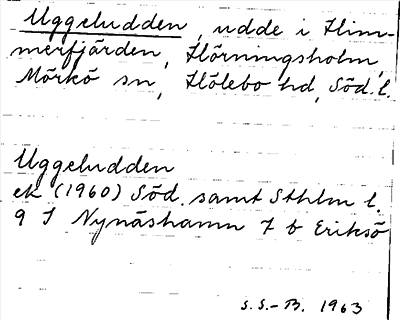 Uggeludden, udde i Him-
merfjärden, Hörningsholm,
Mörkö sn, Hölebo hd, Söd. l.
Uggeludden
ek (1960) Söd. samt Sthlm l.
9 I Nynäshamn 7 b Eriksö
S.S.-B. 1963